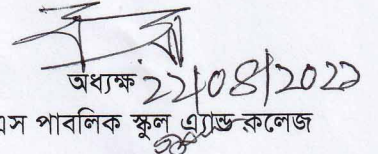 অধ্যক্ষ 22/08/2022
এস পাবলিক স্কুল এ্যান্ড কলেজ